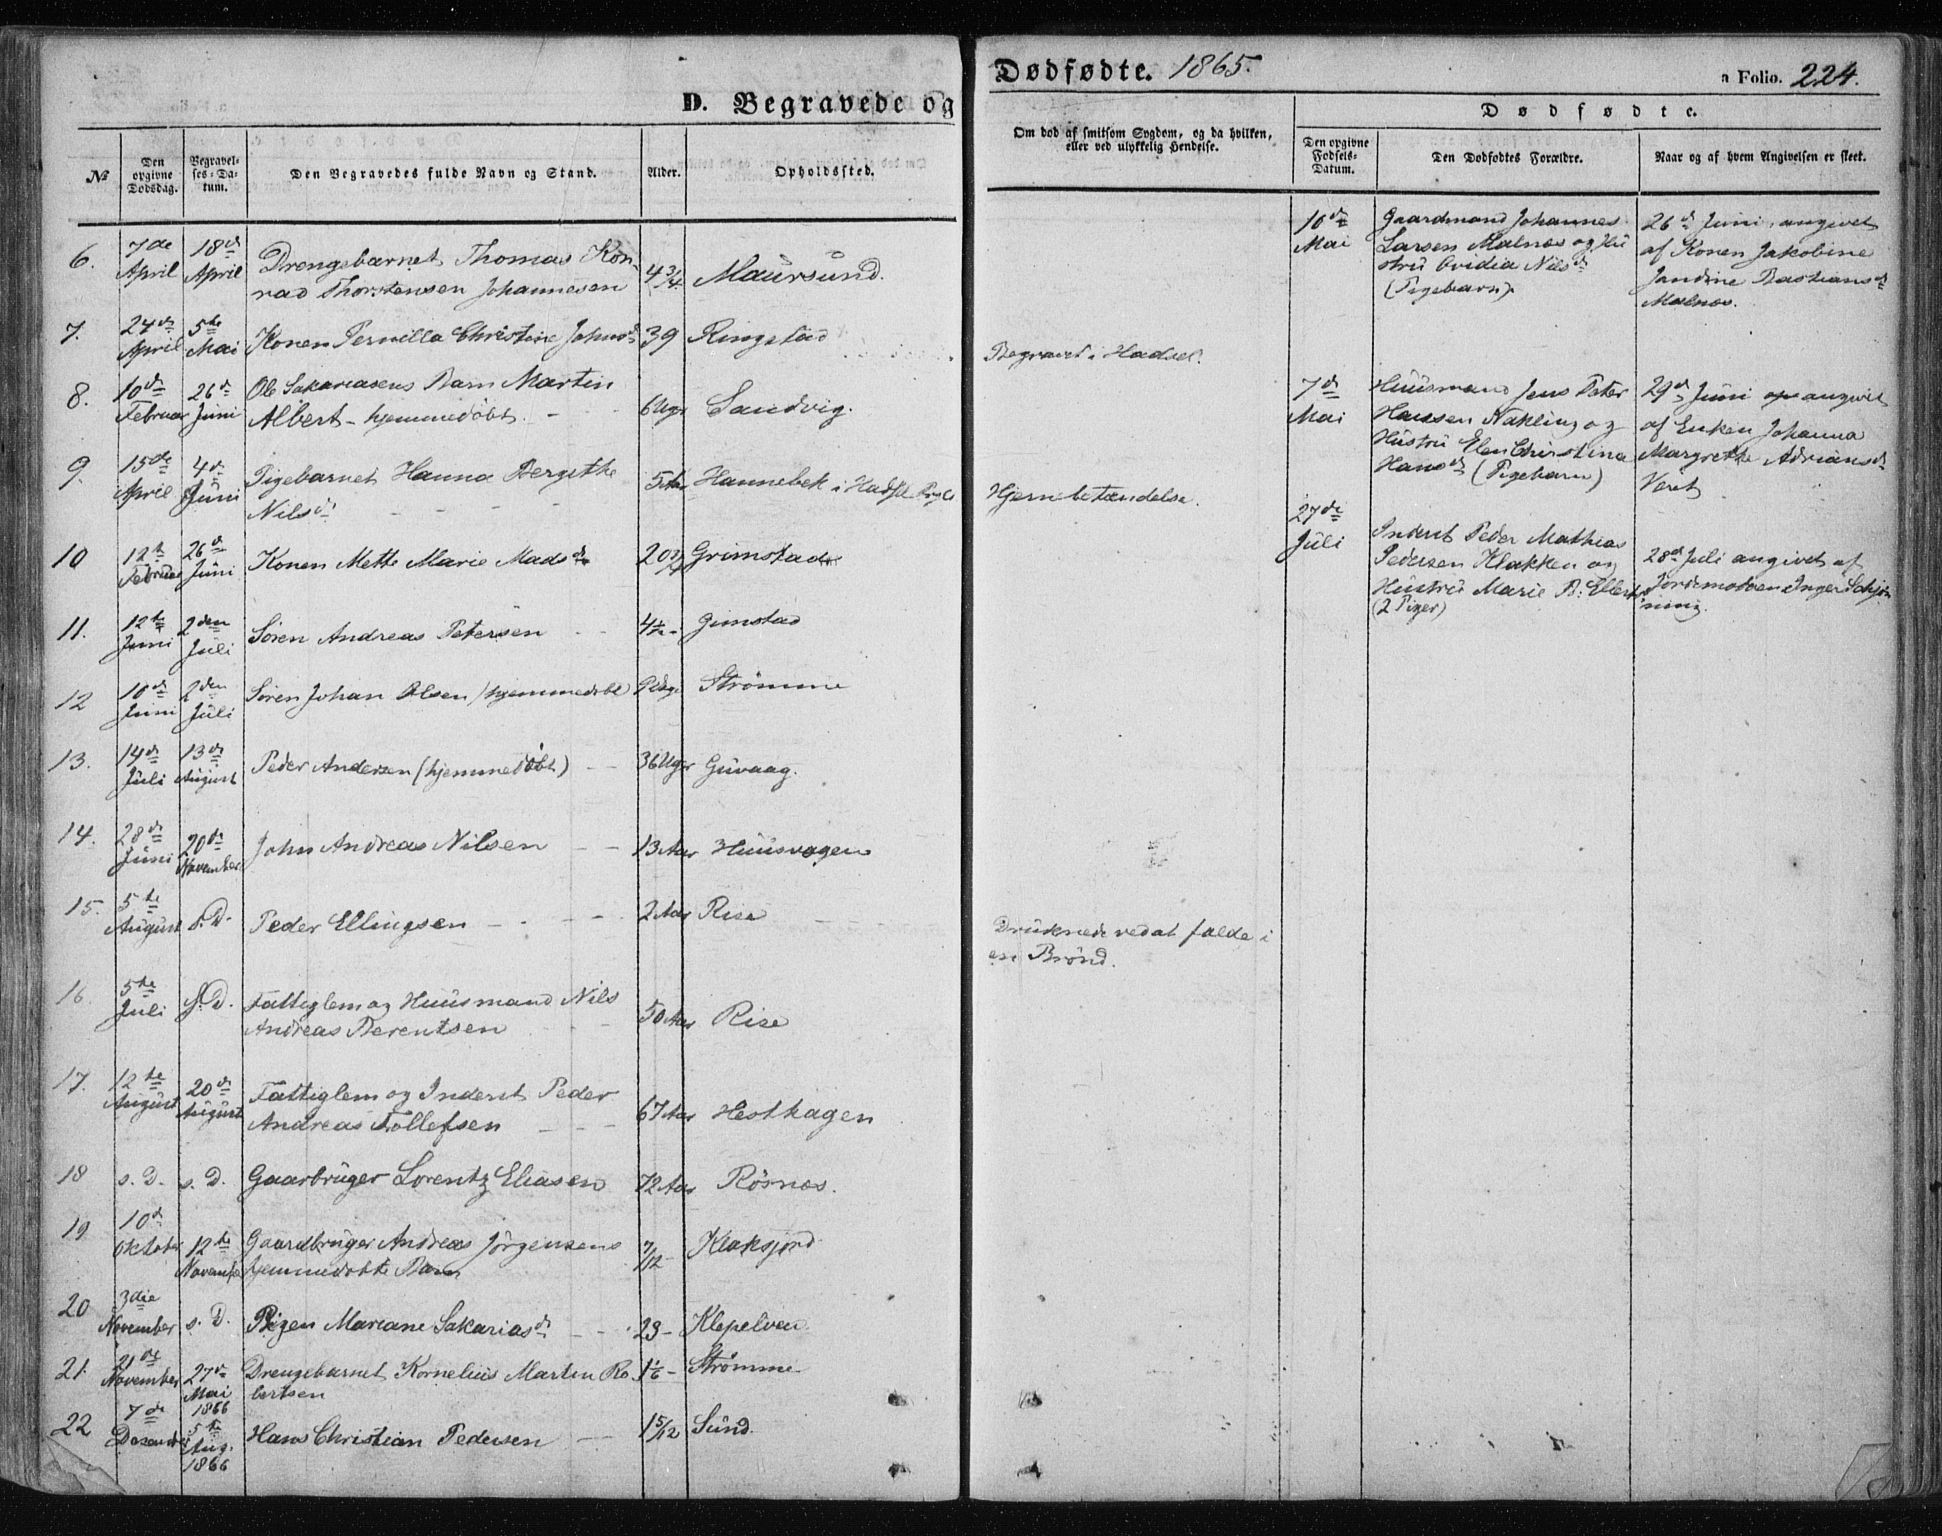 D. Begravede og
№
Den opgivne Dødsdag.
Begravel-ses-Da-tum.
Den Begravedes fulde Navn og Stand.
Alder.
Opholdssted.
6.
7de April
18de April
Drengebarnet Thomas Kon-
rad Thorstensen Johannesen
4 3/4
Maursund.
7.
24de April
5te Mai
Konen Pernilla Christine Johnsd
39
Ringstad
8.
10de Februar
26de Juni
Ole Sakariasens Barn Martin
Albert - hjemmedøbt.
6 Uger
Sandvig.
9.
15de April
4de Juni
Pigebarnet Hanna Bergithe
Nilsd
5
Hannebek i Hadsel
10
12te Februar
26de Juni
Konen Mette Marie Madsd
Grimstad
11.
12te Juni
2den Juli
Søren Andreas Petersen
4½ -
Gimstad
12
10de Juni
2den Juli
Søren Johan Olsen /hjemmedøbt
Strømme
13.
14de Juli
13de August
Peder Andersen (hjemmedøbt)
36 Uger
Guvaag.
14.
28de Juni
20de November
John Andreas Nilsen
13 Aar
Huusvagen
15.
5te August
s. D.
Peder Ellingsen
2 Aar
Rise
16.
5te Juli
s. D.
Fattiglem og Huusmand Nils
Andreas Berentsen
50 Aar
Rise
17.
12te August
20de August
Fattiglem og Inderst Peder
Andreas Tollefsen
67 Aar
Hesthagen
18
s. D.
s. D.
Gaarbruger Lorentz Eliasen
72 Aar
Røsnæs.
19
10de Oktober
12te November
Gaardbruger Andreas Jørgensens
hjemmedøbte Barn
7/12 -
Klaksjord
20
3die November
s. D.
Pigen Mariane Sakariasd
23 -
Klepelven.
21.
21de November
27de Mai 1866
Drengebarnet Kornelius Martin Ro-
bertsen
1 1/6 -
Strømme
22
7de Desember
5te Aug. 1866
Hans Christian Pedersen
1 5/12
Sund.
Dødfødte. 1865.
a Folio. 224.
Om død af smitsom Sygdom, og da hvilken,
eller ved ulykkelig Hendelse.
Dødfødte.
Den opgivne Fødsels-Datum.
Den Dødfødtes Forældre.
Naar og af hvem Angivelsen er skeet.
Begravet i Hadsel.
Hjernebetændelse.
Druknede ved at falde i
en Brønd.
10de Mai
Gaardmand Johannes
Larsen Malnæs og Hu
stru Ovidia Nilsd
(Pigebarn).
26de Juni, angivet
af Konen Jakobine
Jandine Bastiansd
Malnæs.
7de Mai
Huusmand Jens Peter
Hansen Nakling og
Hustru Elen Christina
Hansd (Pigebarn)
29de Juni angivet
af Enken Johanna
Margrethe Adriansd
Voret
27de Juli
Inderst Peder Mathias
Pedersen Klakken og
Hustru Marie B:
(2 Piger)
28de Juli angivet af
Jordemoderen Inger Schjø-
ning.